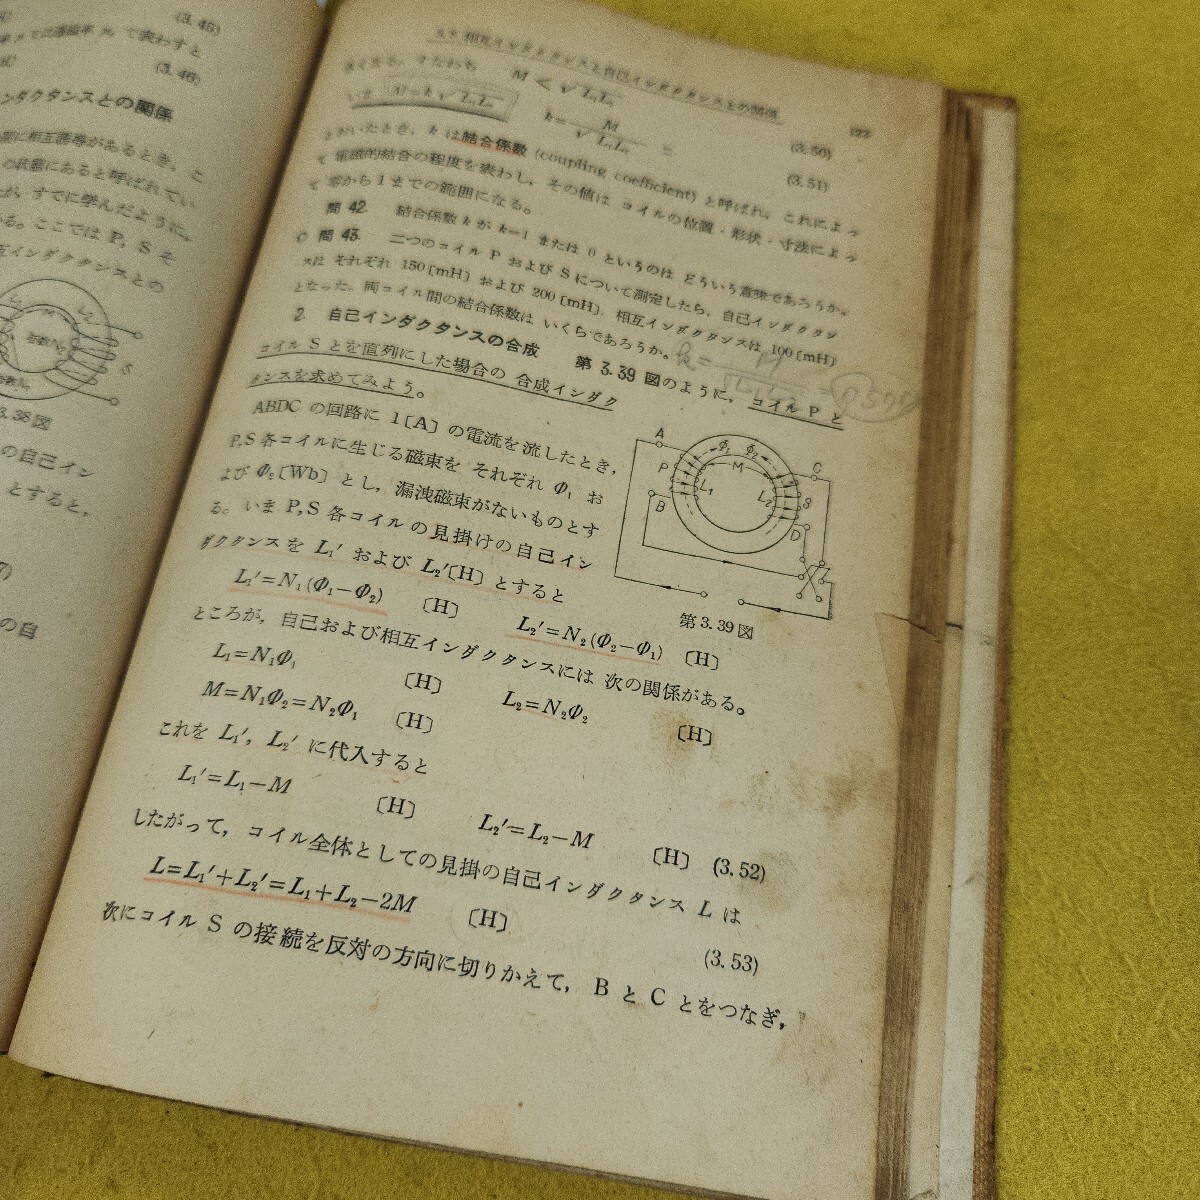 (3.45)
で表わすと
(3.46)
ンダクタンスとの関係
に相互誘導があるとき，こ
の状態にあると呼ばれてい
が，すでに学んだように，
る。ここでは P, S そ
互インダクタンスとの
M
S
3.38図
の自己イン
とすると，
の自
相互インダクタンスと自己インダクタンスとの関係
すなわち M<√L₁L₂ (3.50)
いま M=k√L₁L₂ k=M/√L₁L₂ = (3.51)
とおいたとき，k は結合係数 (coupling coefficient) と呼ばれ，これによっ
て 電磁的結合の程度を表わし，その値は コイルの位置・形状・寸法によっ
て 零から 1 までの範囲になる。
問 42. 結合係数 k が k=1 または 0 というのは どういう意味であろうか。
問 43. 二つのコイル P および S について測定したら，自己インダクタン
スは それぞれ 150〔mH〕および 200〔mH〕，相互インダクタンスは 100〔mH〕
となった。両コイル間の結合係数は いくらであろうか。
2. 自己インダクタンスの合成 第 3.39 図のように，コイル P と
コイル S とを直列にした場合の 合成インダク
タンスを求めてみよう。
ABDC の回路に 1〔A〕の電流を流したとき，
P, S 各コイルに生じる磁束を それぞれ Φ₁ お
よび Φ₂〔Wb〕とし，漏洩磁束がないものとす
る。いま P, S 各コイルの見掛けの自己イン
ダクタンスを L₁′ および L₂′〔H〕とすると
A
P
B
L₁
Φ₁
Φ₂
M
L₂
C
S
D
第3.39図
L₁′=N₁(Φ₁−Φ₂) 〔H〕 L₂′=N₂(Φ₂−Φ₁) 〔H〕
ところが，自己および相互インダクタンスには 次の関係がある。
L₁=N₁Φ₁ 〔H〕 L₂=N₂Φ₂ 〔H〕
M=N₁Φ₂=N₂Φ₁ 〔H〕
これを L₁′，L₂′ に代入すると
L₁′=L₁−M 〔H〕 L₂′=L₂−M 〔H〕 (3.52)
したがって，コイル全体としての見掛の自己インダクタンス L は
L=L₁′+L₂′=L₁+L₂−2M 〔H〕 (3.53)
次にコイル S の接続を反対の方向に切りかえて，B と C とをつなぎ，